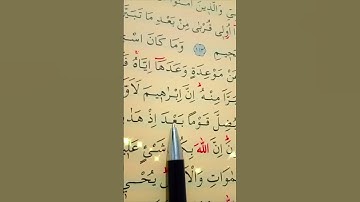 وَالَّذ۪ينَ اٰمَنُٓوا
اُو۬ل۪ي قُرْبٰى مِنْ بَعْدِ مَا تَبَيَّ
ح۪يمِ ﴿١١٣﴾ وَمَا كَانَ اسْتِ
مِنْ مَوْعِدَةٍ وَعَدَهَٓا اِيَّاهُۚ فَ
مِنْهُۜ اِنَّ اِبْرٰه۪يمَ لَاَوَّ
يُضِلَّ قَوْمًا بَعْدَ اِذْ هَدٰ
اِنَّ اللّٰهَ بِكُلِّ شَيْءٍ عَل۪ي
مٰوَاتِ وَالْاَرْضِۜ يُحْي۪